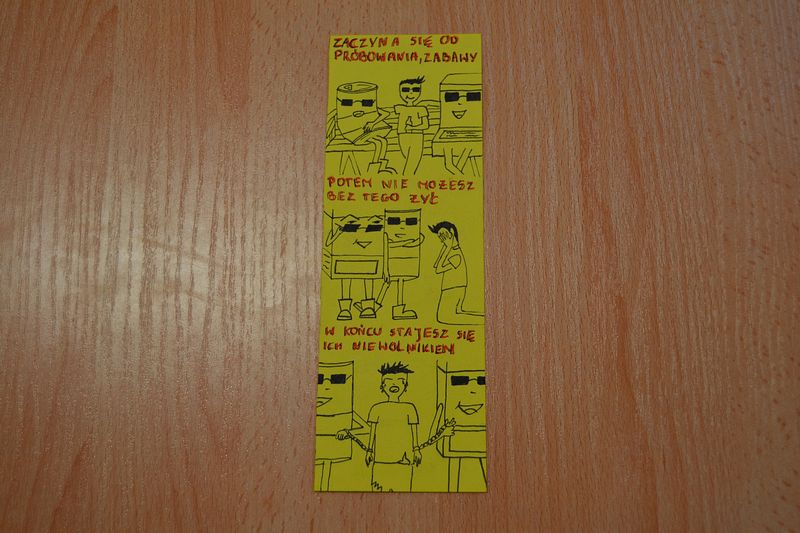 ZACZYNA SIĘ OD
PRÓBOWANIA, ZABAWY
POTEM NIE MOŻESZ
BEZ TEGO ŻYŁ
W KOŃCU STAJESZ SIĘ
ICH NIEWOLNIKIEM